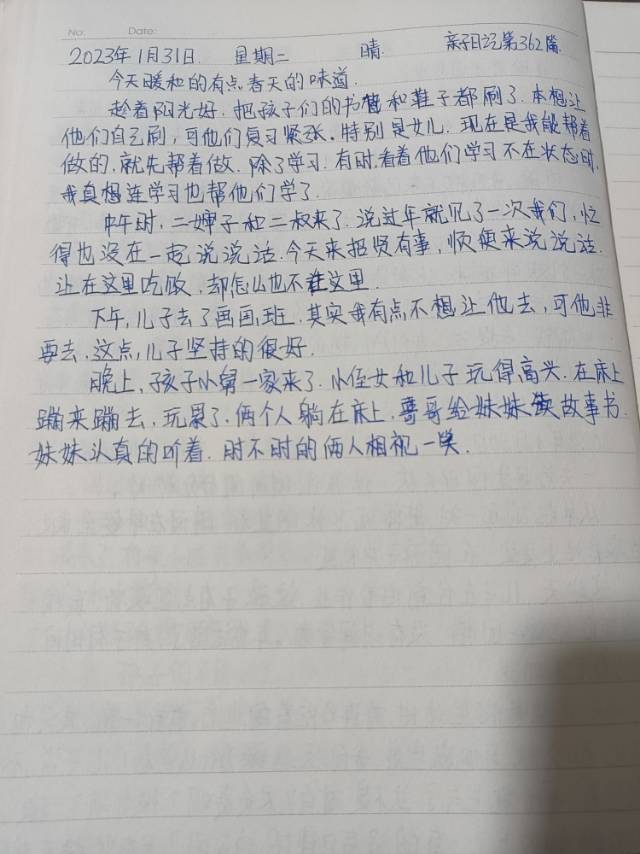 No. Date:
2023年1月31日 星期二 晴 亲子日记第362篇
今天暖和的有点春天的味道.
趁着阳光好.把孩子们的书包和鞋子都刷了.本想让
他们自己刷,可他们复习紧张.特别是女儿.现在是我能帮着
做的,就先帮着做.除了学习.有时,看着他们学习不在状态时,
我真想连学习也帮他们学了.
中午时,二婶子和二叔来了.说过年就见了一次我们,忙
得也没在一起说说话.今天来招贤有事,顺便来说说话.
让在这里吃饭,却怎么也不在这里.
下午,儿子去了画画班.其实我有点不想让他去,可他非
要去.这点,儿子坚持的很好.
晚上,孩子小舅一家来了.小侄女和儿子玩得高兴.在床上
蹦来蹦去,玩累了.俩个人躺在床上,哥哥给妹妹读故事书.
妹妹认真的听着.时不时的俩人相视一笑.